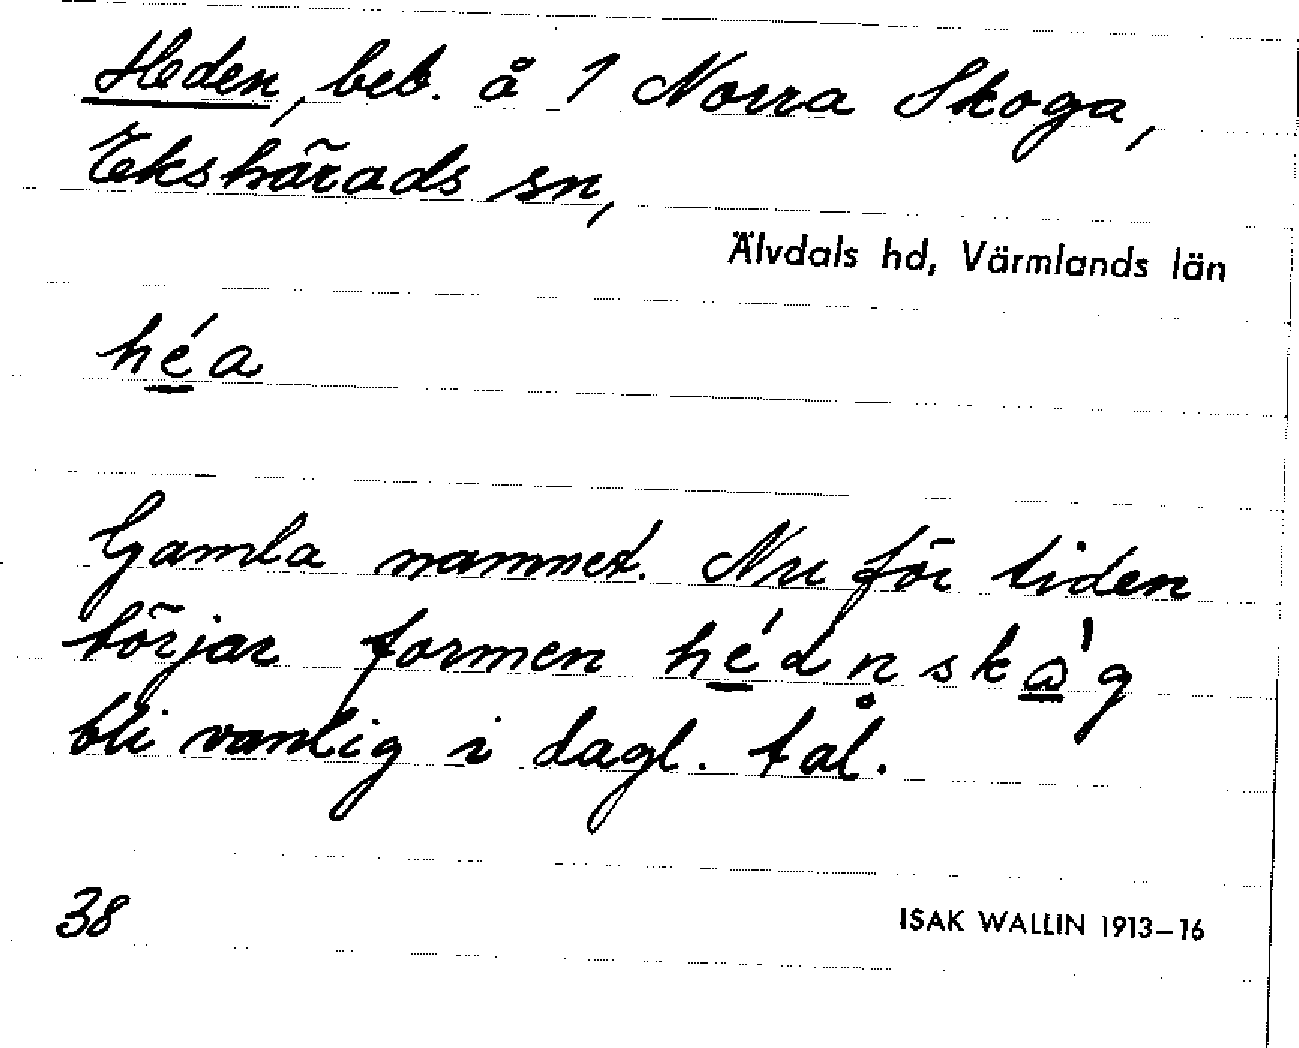 Heden, beb. å 1 Norra Skoga,
Ekshärads sn,
Älvdals hd, Värmlands län
héa
Gamla namnet. Nu för tiden
börjar formen héan skòg
bli vanlig i dagl. tal.
38
ISAK WALLIN 1913–16